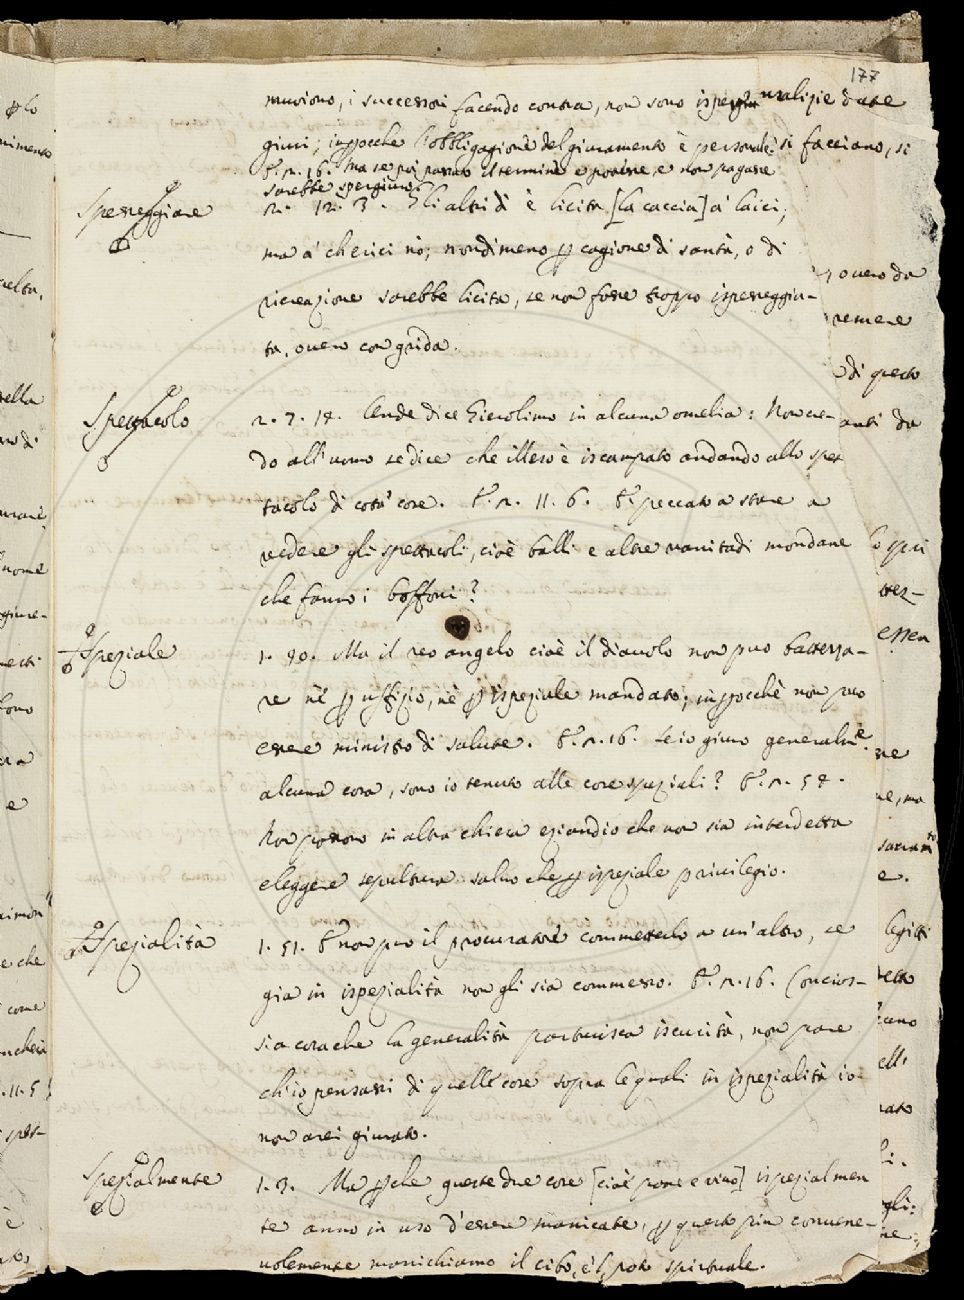 177
muoiono, i successori facendo contra, non sono isper
giuri; imꝑocche l'obbligagione del giuramento è personale.
E n. 16. Ma se poi passato il termine e potesse, e non pagasse
sarebbe spergiuro.
Spereggiare
2. 12. 3. Gli altri dì è licita [la caccia] a' laici,
ma a' cherici nò; nondimeno ꝑ cagione di santà, o di
ricreazione sarebbe licita, se non fosse troppo ispesseggia-
ta, overo con grida.
Spettacolo
2. 7. 14. Onde dice Gierolimo in alcuna omelia: Non cre-
do all' uomo se dice che illeso è iscampato andando allo spet
tacolo di cota' cose. E n. 11. 6. E' peccato a stare a
vedere gli spettacoli, cioè balli e altre vanitadi mondane
che fanno i boffoni?
Speziale
1. 40. Ma il reo angelo cioè il diavolo non può battezza-
re nè ꝑ uffizio, nè ꝑ ispeziale mandato; imꝑocchè non può
essere ministro di salute. E n. 16. Se io giuro generalm.e
alcuna cosa, sono io tenuto alle cose speziali? E n. 54.
Non possono in altra chiesa eziandio che non sia interdetta
eleggere sepultura salvo che ꝑ ispeziale privilegio.
Spezialità
1. 51. E non può il procuratore commetterlo a un' altro, se
già in ispezialità non gli sia commesso. E n. 16. Concios-
sia cosa che la generalità partorisca iscurità, non pare
ch' io pensassi di quelle cose sopra le quali in ispezialità io
non arei giurato.
Spezialmente
1. 3. Ma ꝑche queste due cose [cioè pane e vino] ispezialmen
te anno in uso d'essere manicate, ꝑ questo più convene-
volemente manichiamo il cibo, e 'l poto spirituale.
si facciano, si
overo da
di questo
anti da